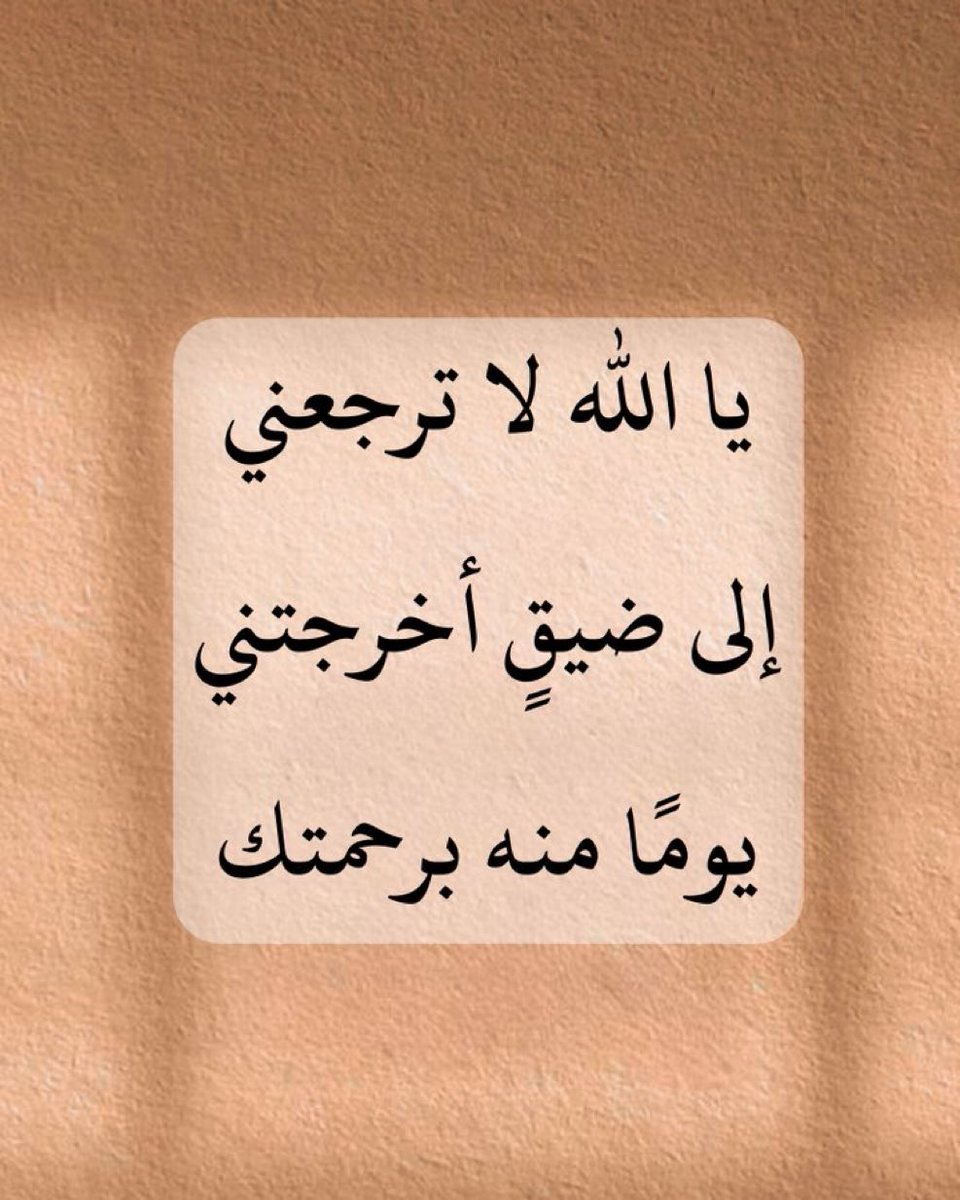 يا الله لا ترجعني
إلى ضيقٍ أخرجتني
يومًا منه برحمتك